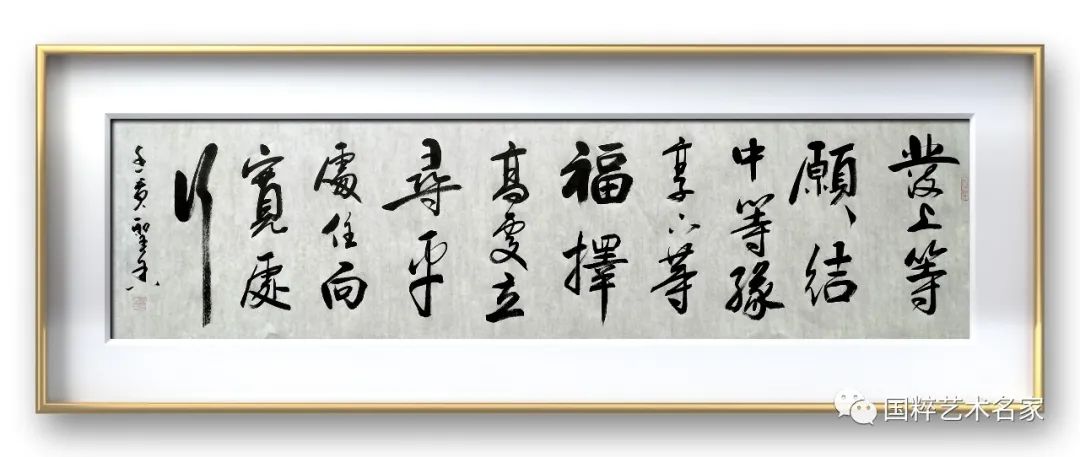 發上等
願結
中等緣
享下等
福擇
高處立
尋平
處住向
寬處
行
国粹艺术名家